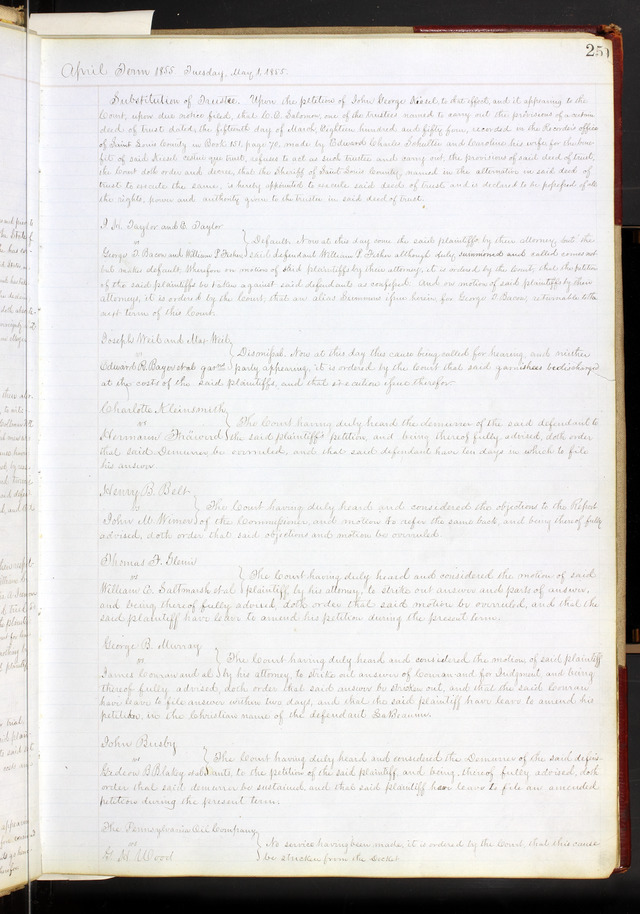 251
April Term 1855 Tuesday, May 1, 1855.
Substitution of Trustee. Upon the petition of John George to that effect, and it appearing to the
Court, upon due notice filed, that C. A. Solomon, one of the trustees named to carry out the provisions of a certain
deed of trust dated the fifteenth day of March, Eighteen hundred and fifty four, recorded in the Recorder's office
of Saint Louis County in Book 151, page 70, made by Edward Charles Schultter and Caroline his wife for the bene-
fit of said cestui que trust, refuses to act as such trustee and carry out the provisions of said deed of trust,
the Court doth order and decree, that the Sheriff of Saint Louis County, named in the alternative in said deed of
trust to execute the same, is hereby appointed to execute said deed of trust and is declared to be possessed of all
the rights, power and authority given to the trustee in said deed of trust.
Taylor and B. Taylor
vs
George T. Bacon and William P. Fisher } Default. Now at this day come the said plaintiffs by their attorney, but the
said defendant William P. Fisher although duly summoned and called comes not
but makes default, Wherefore on motion of said plaintiffs by their attorney, it is ordered by the Court, that the petition
of the said plaintiffs be taken against said defendants as confessed. And on motion of said plaintiffs by their
attorney, it is ordered by the Court, that an alias Summons issue herein, for George T. Bacon, returnable to the
next term of this Court.
Joseph Weil and Max Weil
vs
Edward R. et al garn } Dismissed. Now at this day this cause being called for hearing, and neither
party appearing, it is ordered by the Court that said garnishees be discharged
at the costs of the said plaintiffs, and that execution issue therefor.
Charlotte Kleinsmith
vs
Hermann } The Court having duly heard the demurrer of the said defendant to
the said plaintiff's petition, and being thereof fully advised, doth order
that said Demurrer be overruled, and that said defendant have ten days in which to file
his answer.
Henry B. Belt
vs
John M. Wimer } The Court having duly heard and considered the objections to the Report
of the Commissioner, and motion to refer the same back, and being thereof fully
advised, doth order that said objections and motion be overruled.
Thomas F. Glenn
vs
William D. Saltmarsh et al } The Court having duly heard and considered the motion of said
plaintiff, by his attorney, to strike out answer and parts of answer,
and being thereof fully advised, doth order that said motion be overruled, and that the
said plaintiff have leave to amend his petition during the present term.
George B. Murray
vs
James Conran and al } The Court having duly heard and considered the motion of said plaintiff
by his attorney, to strike out answer of Conran and for Judgment, and being
thereof fully advised, doth order that said answer be stricken out, and that the said Conran
have leave to file answer within two days, and that the said plaintiff have leave to amend his
petition, in the Christian name of the defendant LaBeaume.
John Busby
vs
Gedeon B Blakey et al } The Court having duly heard and considered the Demurrer of the said defen-
dants, to the petition of the said plaintiff, and being thereof fully advised, doth
order that said demurrer be sustained, and that said plaintiff have leave to file an amended
petition during the present term.
The Pennsylvania Oil Company
vs
G. M Wood } No service having been made, it is ordered by the Court, that this cause
be stricken from the docket.